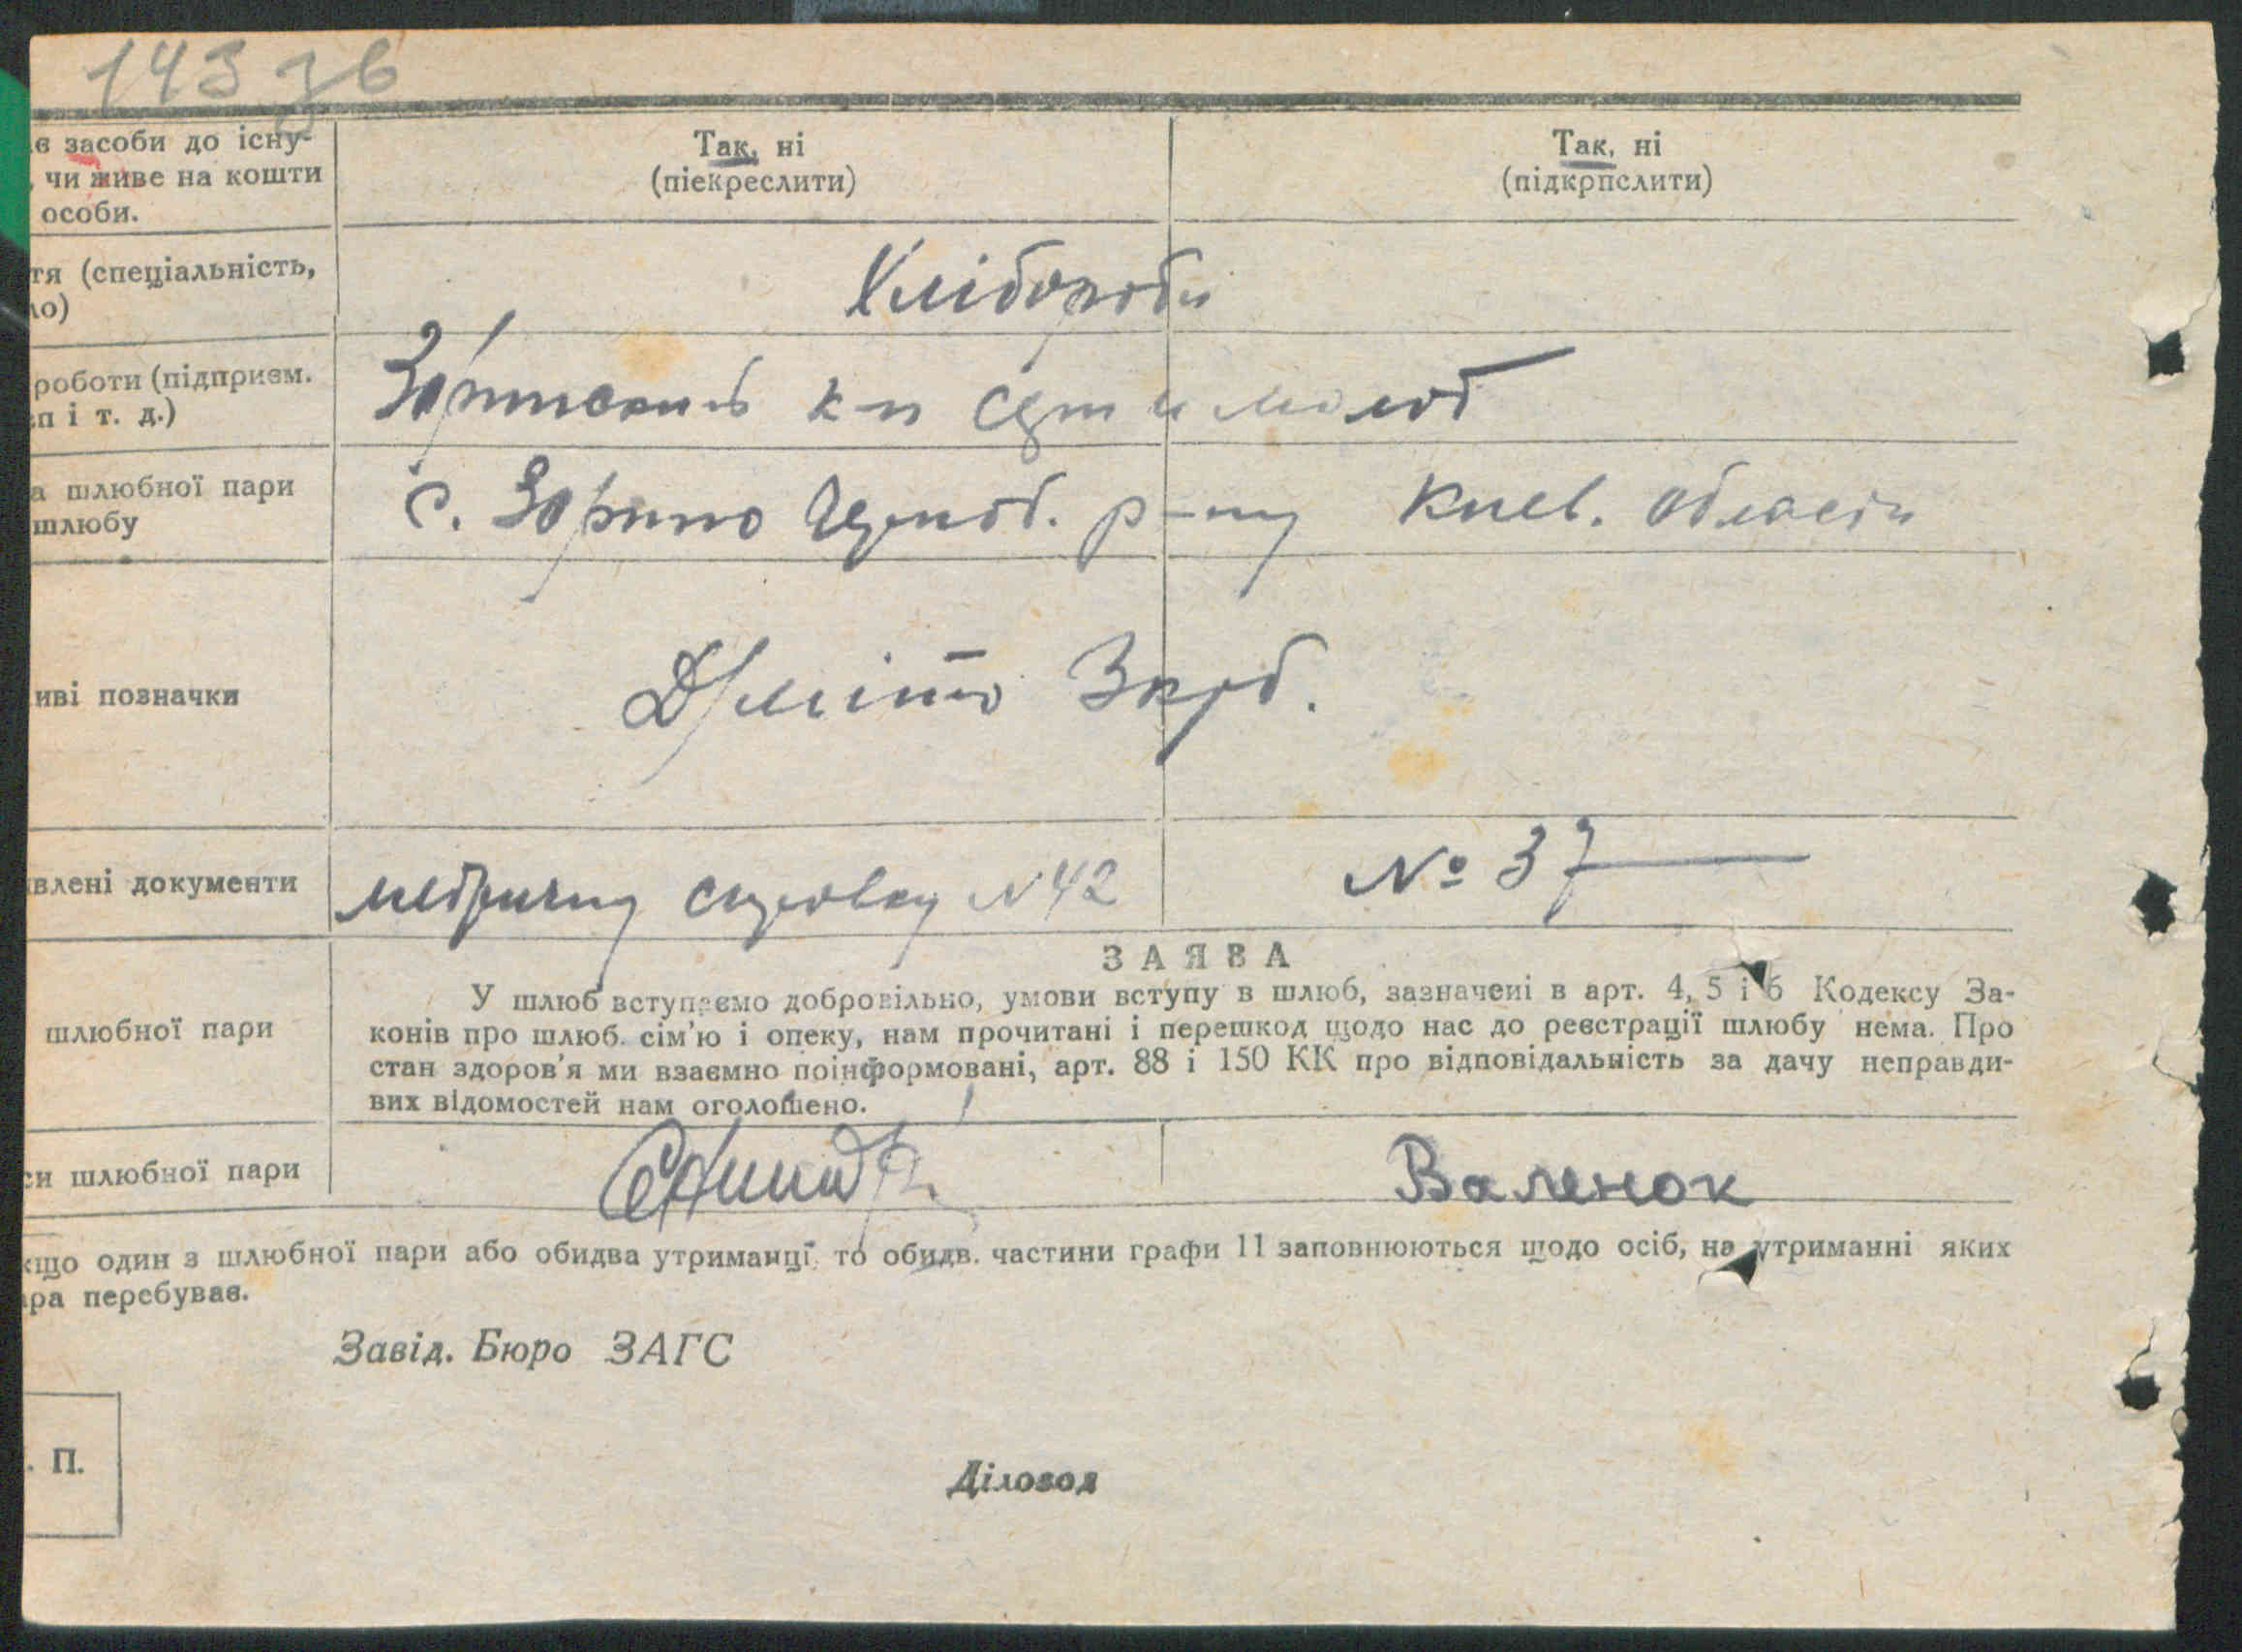 143 зв
ає засоби до існу-
, чи живе на кошти
особи.
Так, ні
(піекреслити)
Так, ні
(підкрпслити)
тя (спеціальність,
ло)
Хлібороби
роботи (підприєм.
п і т. д.)
к-п Серп и молот
а шлюбної пари
шлюбу
с. Зорино р-ну Киев. области
иві позначки
влені документи
метричну N 42
№ 37
ЗАЯВА
шлюбної пари
У шлюб вступаємо добровільно, умови вступу в шлюб, зазначені в арт. 4, 5 і 6 Кодексу За-
конів про шлюб. сім'ю і опеку, нам прочитані і перешкод щодо нас до реєстрації шлюбу нема. Про
стан здоров'я ми взаємно поінформовані, арт. 88 і 150 КК про відповідальність за дачу неправди-
вих відомостей нам оголошено.
си шлюбної пари
Валенок
кщо один з шлюбної пари або обидва утриманці, то обидв. частини графи 11 заповнюються щодо осіб, на утриманні яких
ара перебуває.
Завід. Бюро ЗАГС
. П.
Діловод